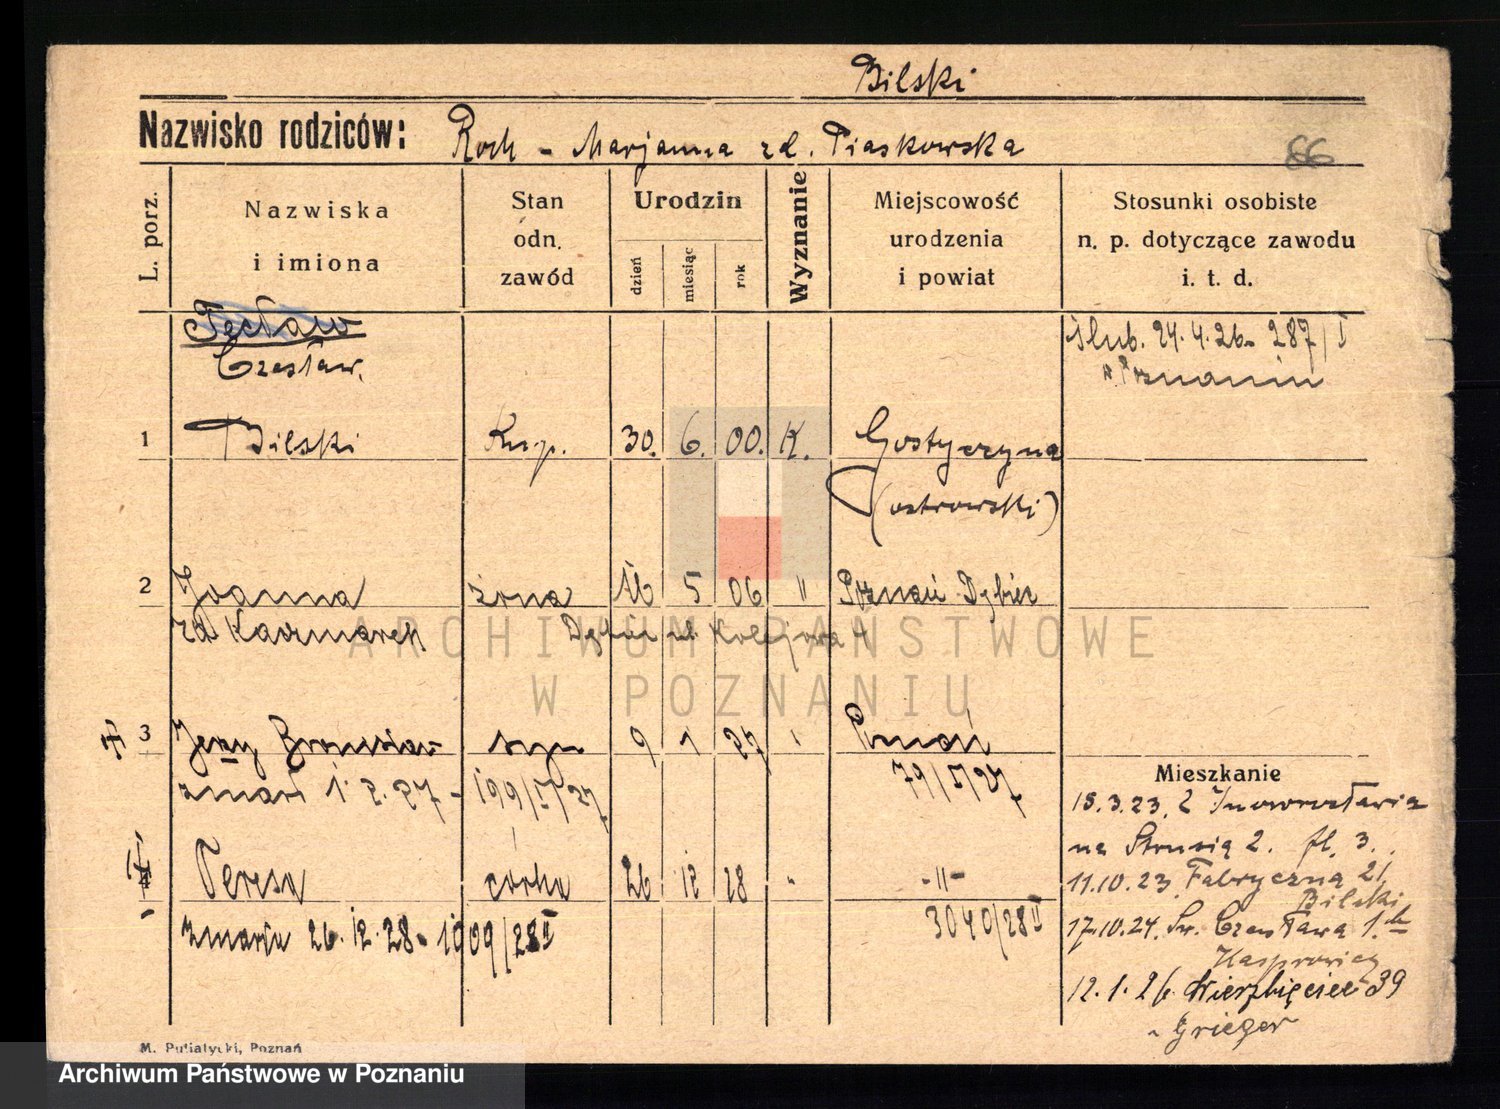 Bilski
Nazwisko rodziców: Roch - Marjanna zd. Piaskowska
86
L. porz.
Nazwiska i imiona
Stan odn. zawód
Urodzin
dzień
miesiąc
rok
Wyznanie
Miejscowość urodzenia i powiat
Stosunki osobiste n. p. dotyczące zawodu i. t. d.
Czesław.
Ślub. 24.4.26- 287/I
w Poznaniu
1 Bilski Kup. 30. 6. 00. K. Gostyczyna
(ostrowski)
2 Joanna żona 5 06 " Poznań Dębiec
zd Kaczmarek Dębiec ul. Kolejowa 4
ARCHIWUM PAŃSTWOWE
W POZNANIU
3 Jerzy Bronisław syn 9 1 27 " Poznań
zmarł 1.2.27 - 199/I/27 79/I/27
Mieszkanie
15.3.23. z Inowrocławia
na Strusią 2. fl. 3.
4 Teresa córka 26 12 28 " -"-
11.10.23 Fabryczną 21
Bilski
zmarła 26.12.28 - 1909/28II 3040/28II
17.10.24. Św. Czesława 1.
Kasprowicz
12.1.26 Wierzbięcice 39
- Grieger
M. Putiatycki, Poznań
Archiwum Państwowe w Poznaniu